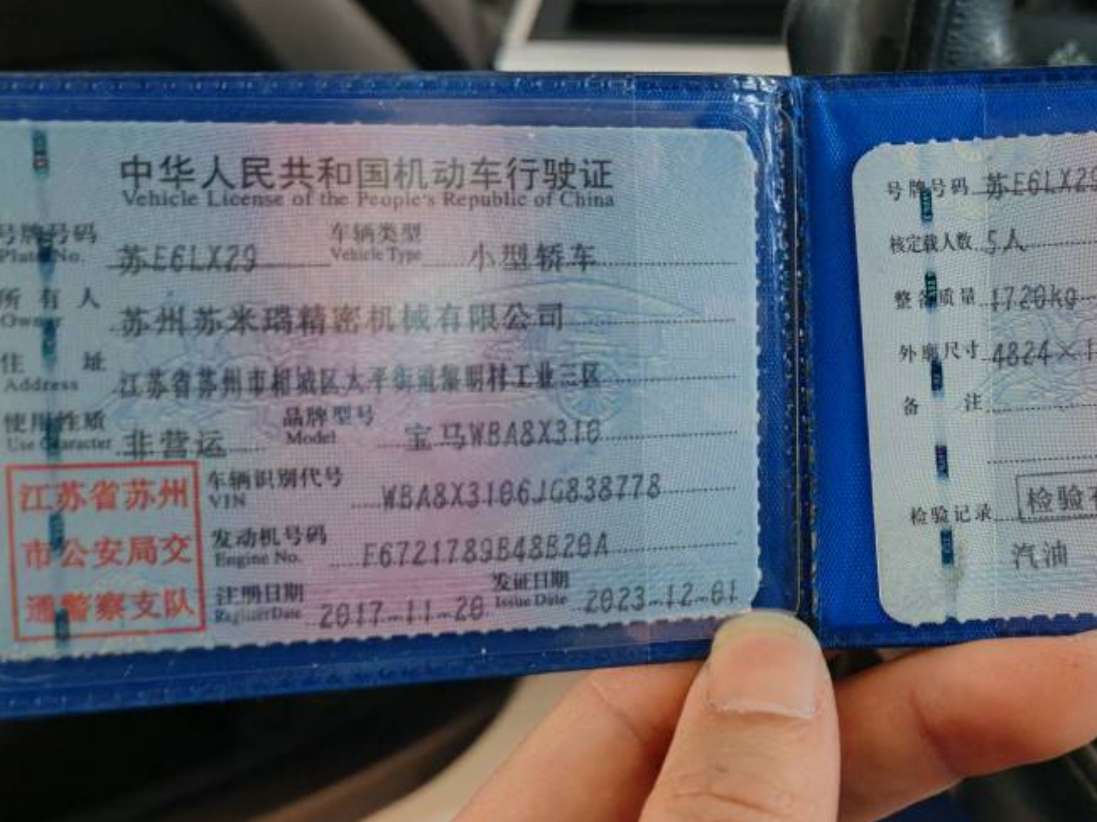 中华人民共和国机动车行驶证
Vehicle License of the People's Republic of China
号牌号码 苏E6LX29 车辆类型 小型轿车
Plate No. Vehicle Type
所有人 苏州苏米瑞精密机械有限公司
Owner
住址 江苏省苏州市相城区太平街道黎明村工业三区
Address
使用性质 非营运 品牌型号 宝马WBA8X310
Use Character Model
江苏省苏州
市公安局交
通警察支队
车辆识别代号 WBA8X3106JG838778
VIN
发动机号码 E6721789B48B20A
Engine No.
注册日期 2017-11-20 发证日期 2023-12-01
Register Date Issue Date
号牌号码 苏E6LX29
核定载人数 5人
整备质量 1720kg
外廓尺寸 4824×1
备注
检验记录 检验
汽油